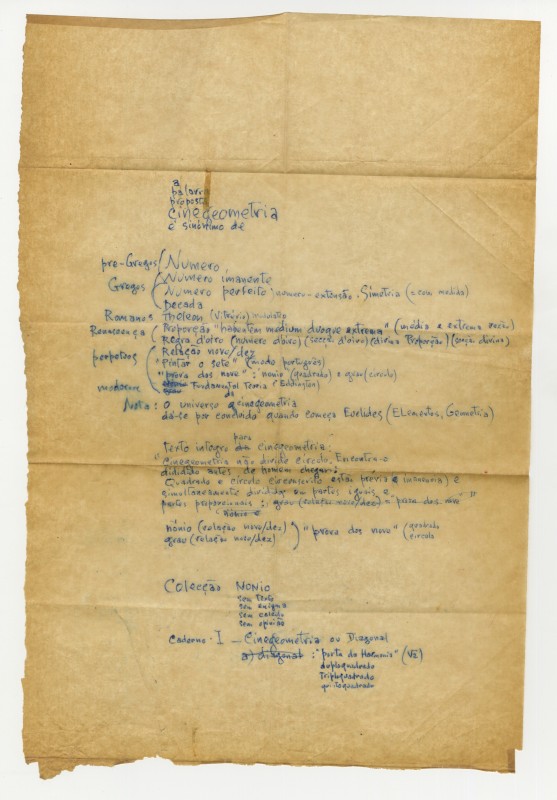 a
palavra
proposta
cinegeometria
é sinónimo de
pre-Gregos Numero
Gregos Numero imanente
Numero perfeito: numero-extensão. Simetria (= com medida)
Decada
Romanos Theleon (Vitrúvio)
Renascença Proporção "habentem medium duoque extrema" (média e extrema razão)
Regra d'oiro (numero d'oiro) (secção d'oiro) (divina Proporção) (secção divina)
perpetuos Relação nove/dez
"Pintar o sete" (modo português)
"prova dos nove": nonio (quadrado) e grau (circulo)
modernos Fundamental Teoria Eddington
Nota: O universo da cinegeometria
dá-se por concluido quando começa Euclides (Elementos, Geometria)
Texto integro para cinegeometria:
"Cinegeometria não divide circulo. Encontra-o
dividido antes do homem chegar:
Quadrado e circulo circunscrito estão prévia e
simultaneamente divididos em partes iguais e
partes proporcionais: grau (relação nove/dez) = prova dos nove"
nónio =
nónio (relação nove/dez) "prova dos nove" quadrado
grau (relação nove/dez) circulo
Colecção NONIO
sem texto
sem enigma
sem calculo
sem opinião
Caderno. I — Cinegeometria ou Diagonal
a) diagonal: "porta da Harmonia" (√2)
duploquadrado
triploquadrado